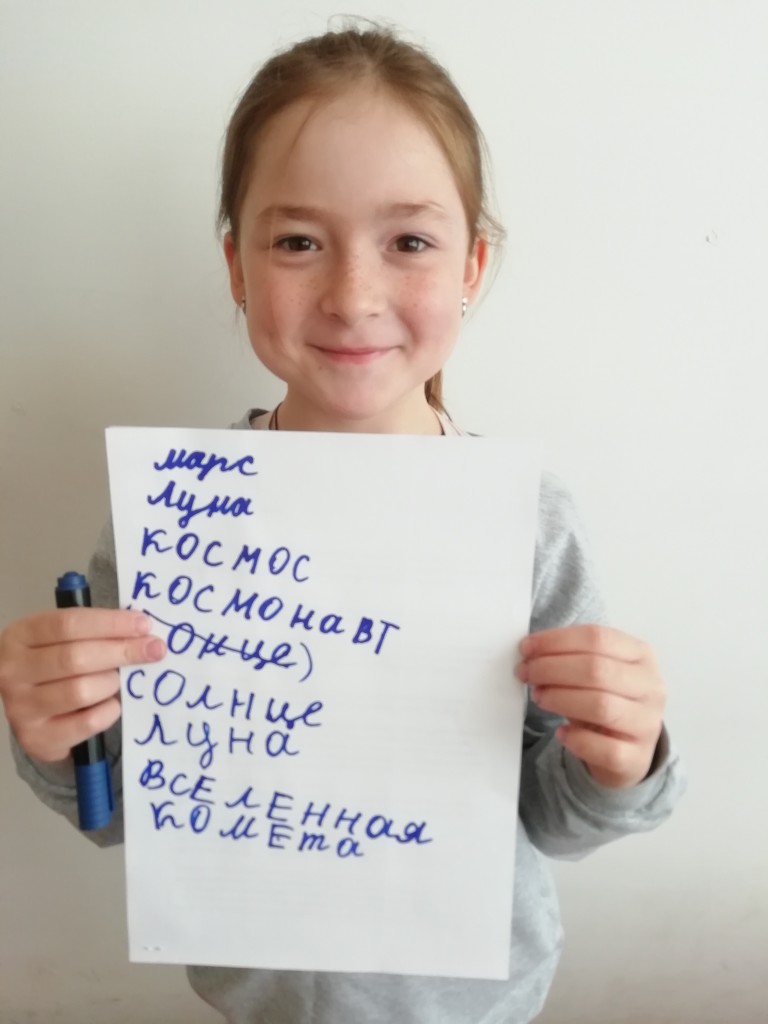 марс
луна
космос
космонавт
онце)
солнце
луна
вселенная
комета